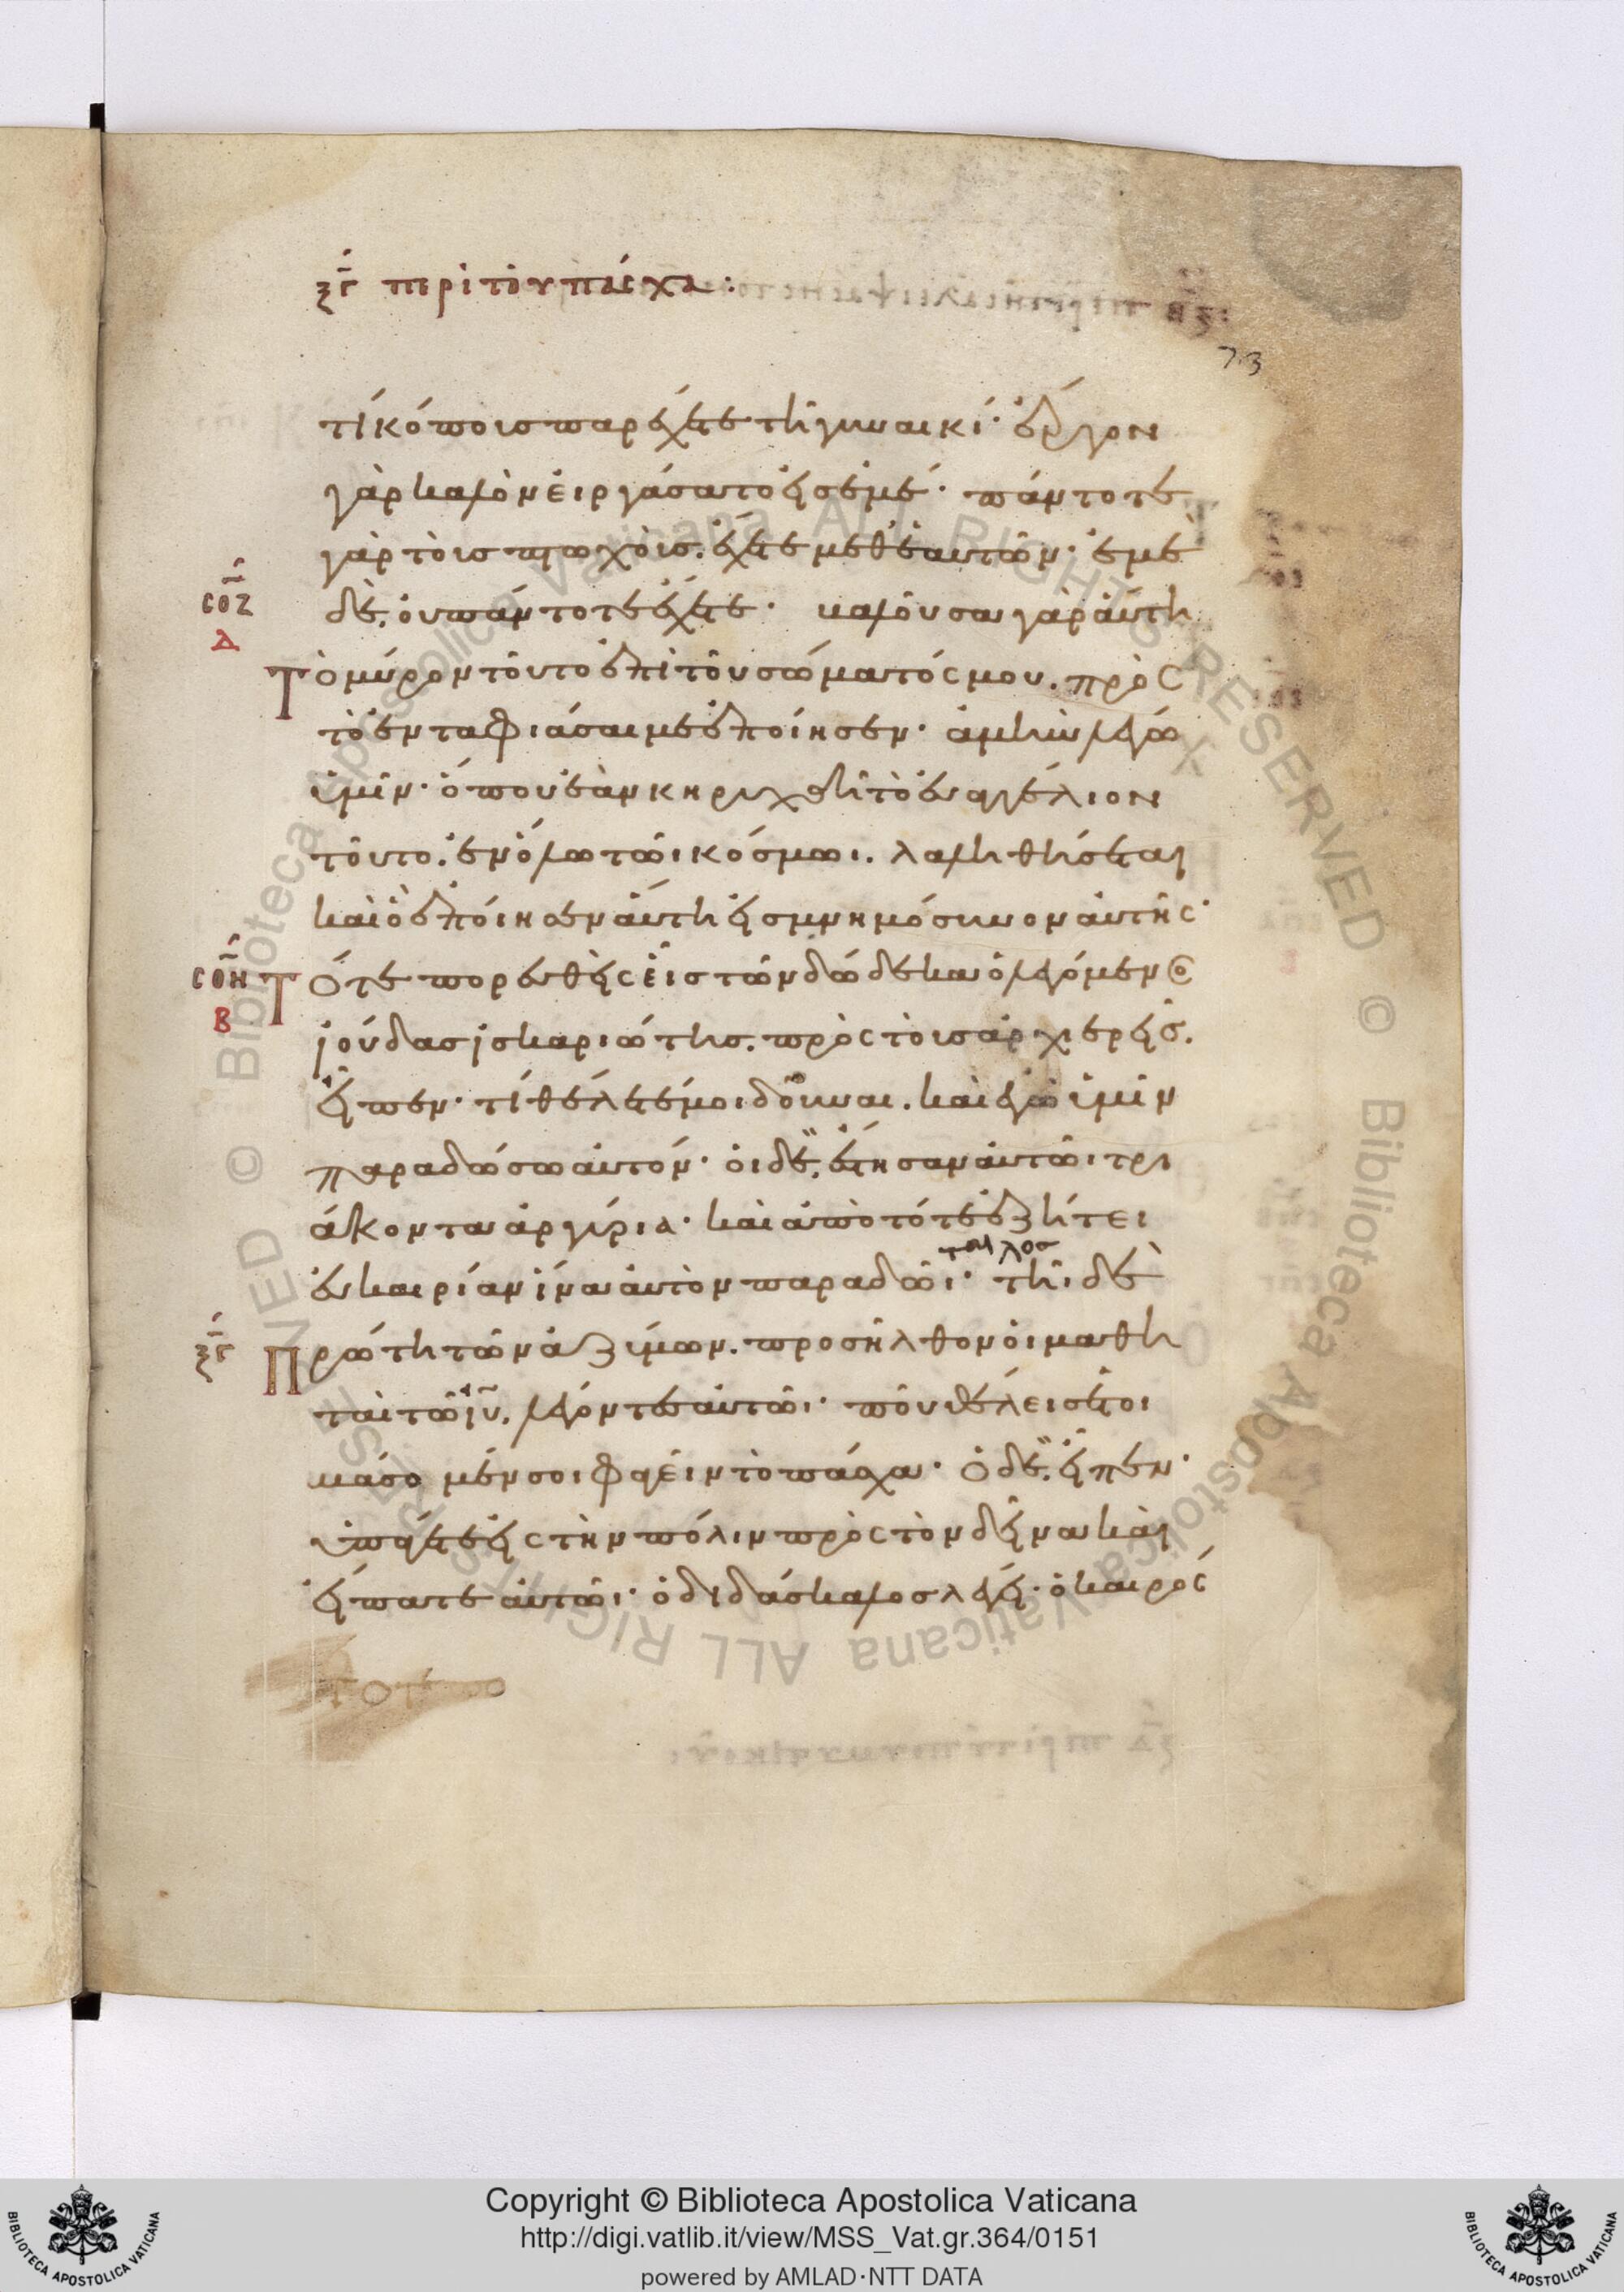 ξγ περὶ τοῦ πάσχα:
73
τί κόπους παρέχετε τῆ γυναικί· ἔργον
γὰρ καλὸν εἰργάσατο εἰς ἐμέ· πάντοτε
γὰρ τοὺς πτωχοὺς ἔχετε μεθ' ἑαυτῶν· ἐμὲ
σοζ
δ
δὲ οὐ πάντοτε ἔχετε· βαλοῦσα γὰρ αὕτη
Τὸ μύρον τοῦτο ἐπὶ τοῦ σώματός μου. πρὸς
τὸ ἐνταφιάσαι με ἐποίησεν· ἀμὴν λέγω
ὑμῖν· ὅπου ἐὰν κηρυχθῆ τὸ εὐαγγέλιον
τοῦτο. ἐν ὅλω τῶι κόσμωι. λαληθήσεται
καὶ ὃ ἐποίησεν αὕτη εἰς μνημόσυνον αὐτῆς·
σοη
β
Τότε πορευθεὶς εἷς τῶν δώδεκα ὁ λεγόμενος
ἰούδας ἰσκαριώτης. πρὸς τοὺς ἀρχιερεῖς.
εἶπεν· τί θέλετέ μοι δοῦναι. καὶ ἐγὼ ὑμῖν
παραδώσω αὐτόν· οἱ δὲ ἔστησαν αὐτῶι τρι
άκοντα ἀργύρια· καὶ ἀπὸ τότε ἐζήτει
εὐκαιρίαν ἵνα αὐτὸν παραδῶι· τέλος τῆι δὲ
ξγ
Πρώτη τῶν ἀζύμων. προσῆλθον οἱ μαθη
ταὶ τῶ ιυ. λέγοντες αὐτῶι· ποῦ θέλεις ἑτοι
μάσομέν σοι φαγεῖν τὸ πάσχα· ὁ δὲ εἶπεν·
ὑπάγετε εἰς τὴν πόλιν πρὸς τὸν δεῖνα καὶ
εἴπατε αὐτῶι· ὁ διδάσκαλος λέγει· ὁ καιρός
Copyright © Biblioteca Apostolica Vaticana
http://digi.vatlib.it/view/MSS_Vat.gr.364/0151
powered by AMLAD·NTT DATA
BIBLIOTECA APOSTOLICA VATICANA
BIBLIOTECA APOSTOLICA VATICANA